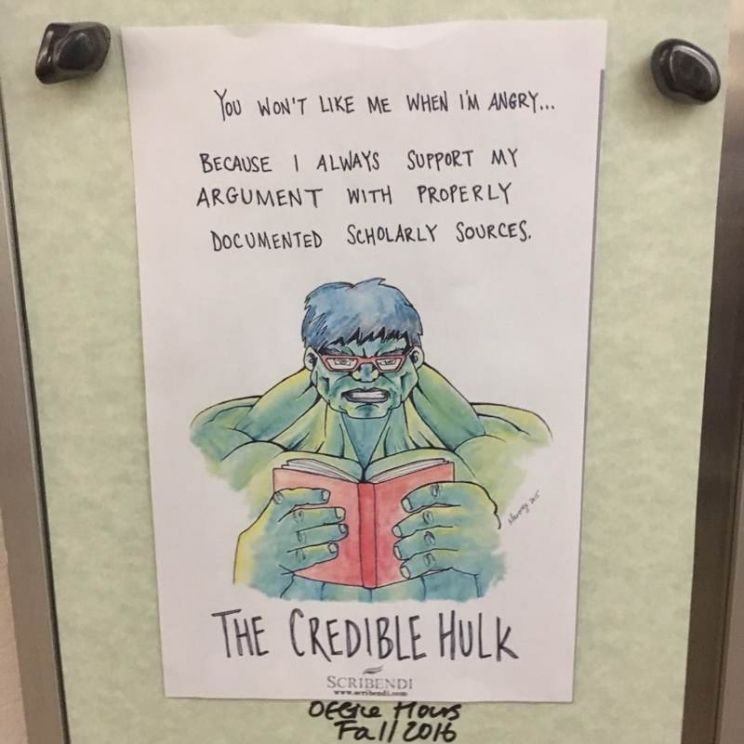 YOU WON'T LIKE ME WHEN I'M ANGRY...
BECAUSE I ALWAYS SUPPORT MY
ARGUMENT WITH PROPERLY
DOCUMENTED SCHOLARLY SOURCES.
THE CREDIBLE HULK
SCRIBENDI
www.scribendi.com
Office Hours
Fall 2016